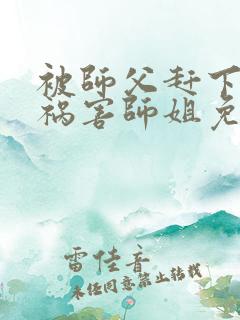 被師父赶下
祸害師姐免
雷佳音
未经同意禁止转载